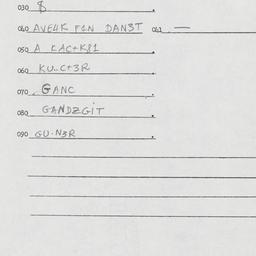 030 $
040 AVE4K F1N DAN3T 041 —
050 A KAC+K81
060 KU.C+3R
070 GANC
080 GANDZGiT
090 GU.N3R